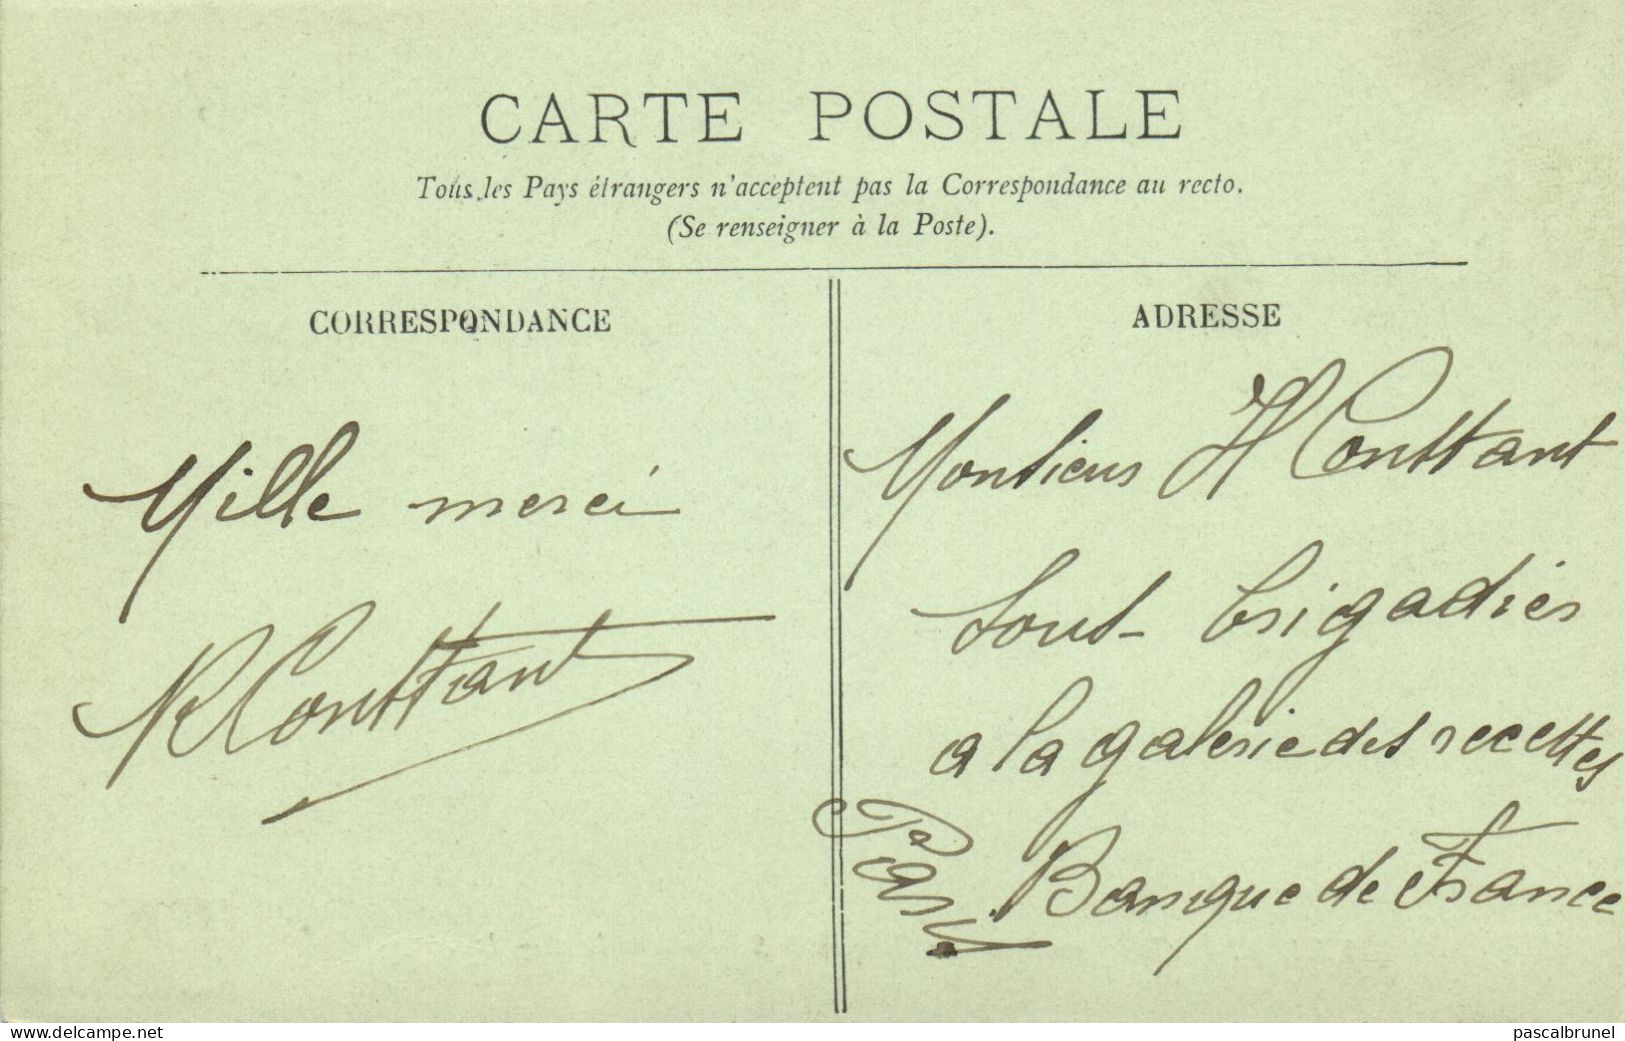 CARTE POSTALE
Tous les Pays étrangers n'acceptent pas la Correspondance au recto.
(Se renseigner à la Poste).
CORRESPONDANCE
Mille merci
R Constant
ADRESSE
Monsieur H Constant
Sous-brigadier
a la galerie des recettes
Banque de France
Paris
www.delcampe.net
pascalbrunel